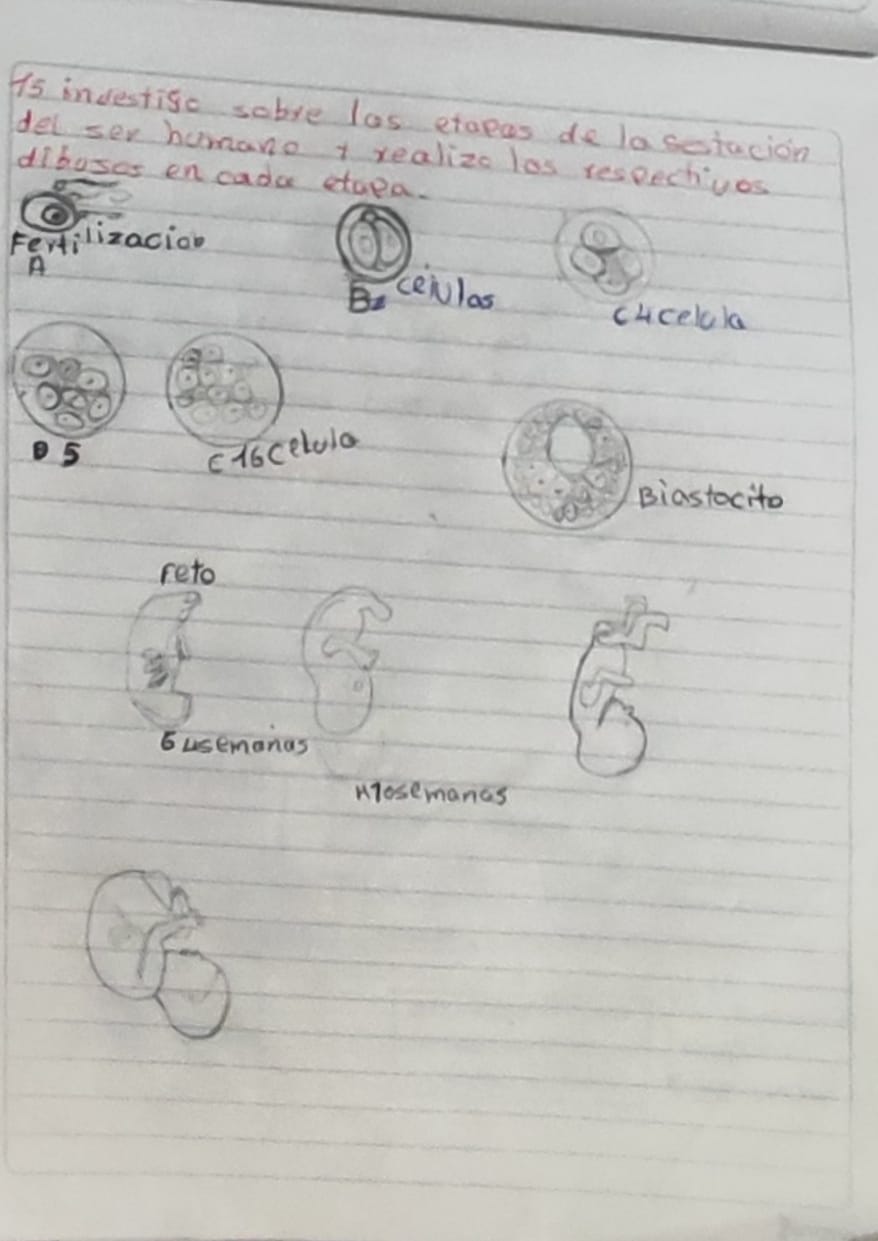 15 investigo sobre las etapas de la gestación
del ser humano y realizo los respectivos
dibujos en cada etapa.
Fertilizacion
A
B2 celulas
C 4 celula
D 5
C 16 Celula
Blastocito
Feto
6 4 semanas
10 semanas